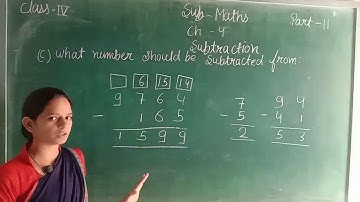 Class-IV Sub- Maths Part-II
Ch - 4
Subtraction
(c) What number should be Subtracted from:
6 15 14
9 7 6 4
- 1 6 5
1 5 9 9
7
- 5
2
9 4
- 4 1
5 3